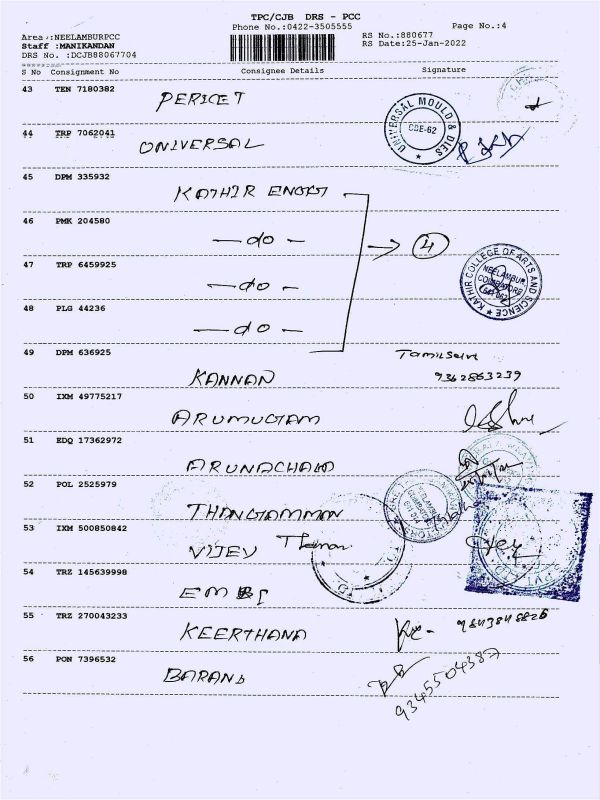 TPC/CJB DRS - PCC
Phone No.:0422-3505555
Page No.:4
Area :NEELAMBURPCC
RS No.:880677
Staff :MANIKANDAN
RS Date:25-Jan-2022
DRS No. :DCJB88067704
S No Consignment No Consignee Details Signature
43 TEN 7180382
PERICET
UNIVERSAL MOULD & DIES
CBE-62
44 TRP 7062041
UNIVERSAL
45 DPM 335932
KATHIR ENGG
46 PMK 204580
— do —
4
47 TRP 6459925
— do —
KATHIR COLLEGE OF ARTS AND SCIENCE
NEELAMBUR,
COIMBATORE
641 062
48 PLG 44236
— do —
49 DPM 636925
Tamilselvi
KANNAN
9362863239
50 IXM 49775217
ARUMUGAM
51 EDQ 17362972
ARUNACHALA
52 POL 2525979
THANGAMMAN
53 IXM 500850842
VIJEY
54 TRZ 145639998
55 TRZ 270043233
KEERTHANA
9843848826
56 PON 7396532
BARANI
9345504387